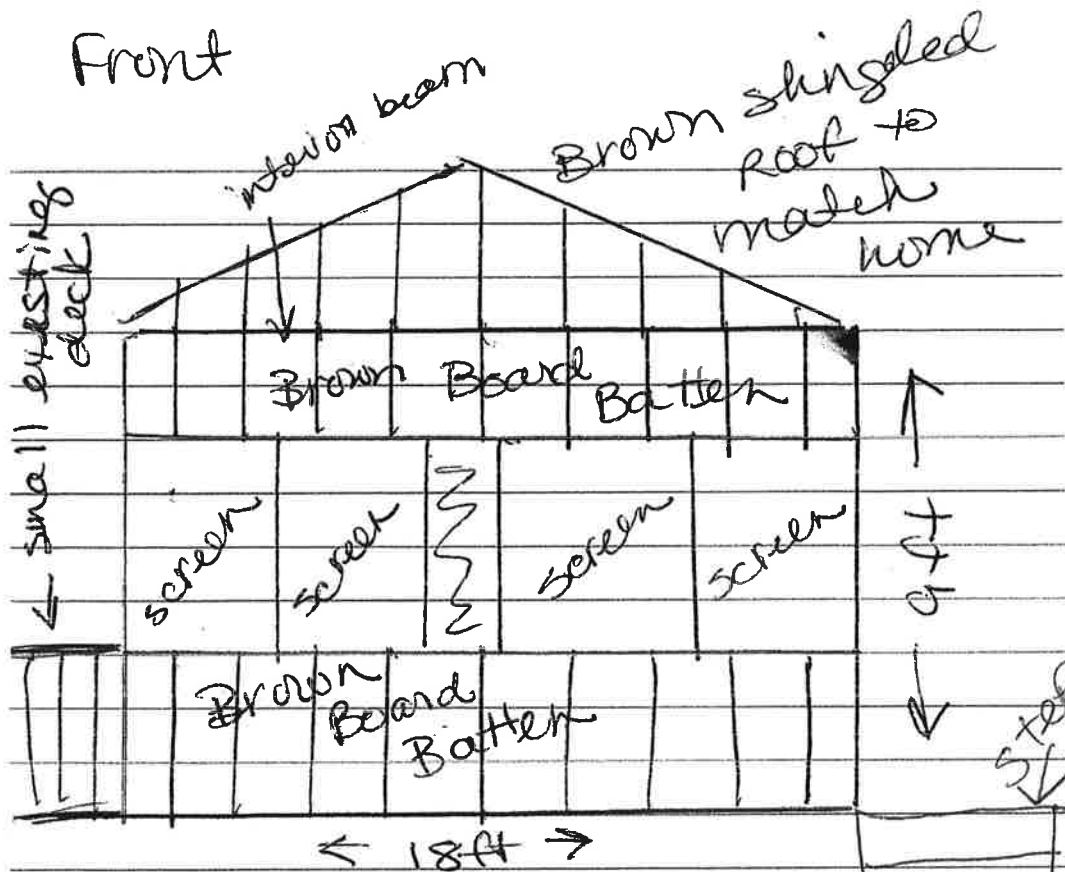 Front
interior beam
Brown shingled
Roof to
match
home
← small existing
deck
Brown Board
Batten
screen
screen
screen
screen
9 ft
Brown
Board
Batten
← 18 ft →